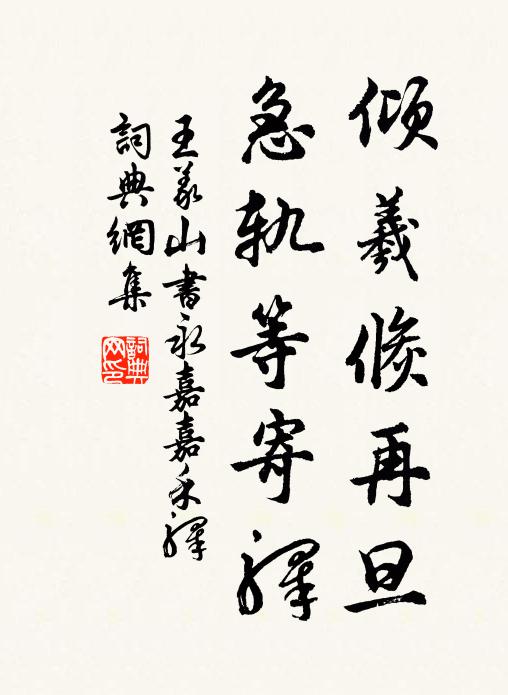 傾羲倏再旦
急軌等寄驛
王義山書永嘉嘉禾驛
詞典網集
詞典網印